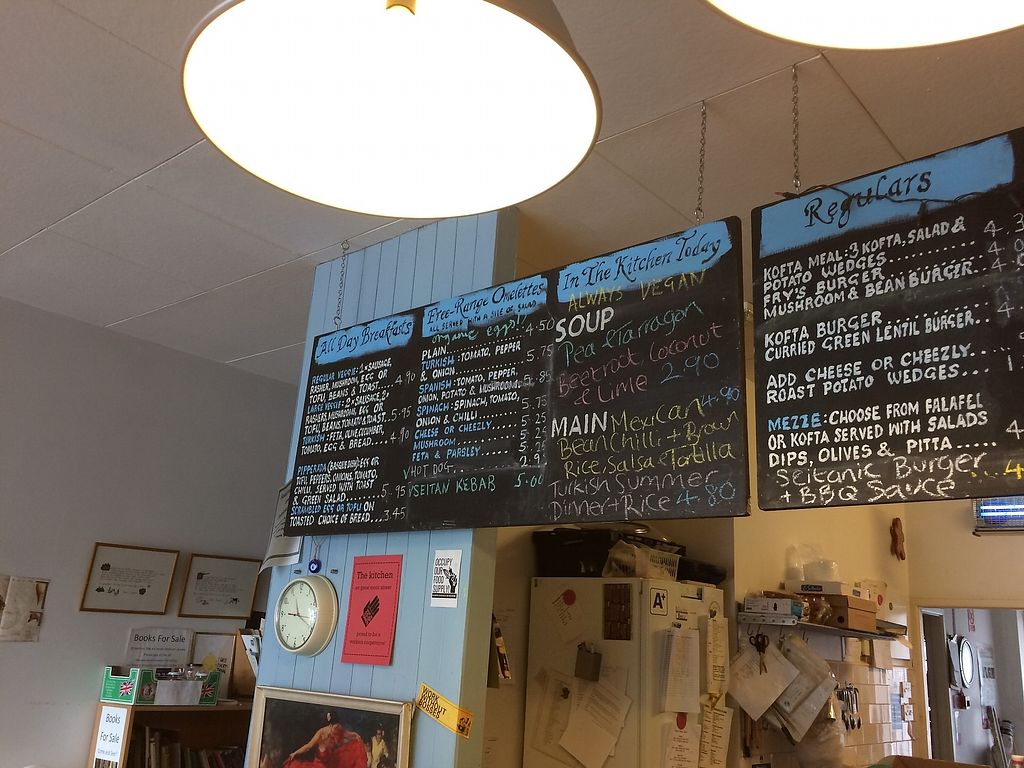 All Day Breakfasts
REGULAR VEGGIE: 1 × SAUSAGE,
RASHER, MUSHROOM, EGG OR
TOFU, BEANS & TOAST.... 4.90
LARGE VEGGIE: 2 × SAUSAGE, 2 ×
RASHERS, MUSHROOMS, EGG OR
TOFU, BEANS, TOMATO & TOAST 5.95
TURKISH: FETA, OLIVE, CUCUMBER,
TOMATO, EGG & BREAD.... 4.90
PIPPERADA (BASQUE DISH): EGG OR
TOFU, PEPPERS, ONIONS, TOMATO,
CHILLI, SERVED WITH TOAST
& GREEN SALAD........ 5.95
SCRAMBLED EGG OR TOFU ON
TOASTED CHOICE OF BREAD... 3.45
Free-Range Omelettes
ALL SERVED WITH A SIDE OF SALAD
organic eggs!!
PLAIN........ 4.50
TURKISH: TOMATO, PEPPER
& ONION........ 5.75
SPANISH: TOMATO, PEPPER,
ONION, POTATO & MUSHROOM...
SPINACH: SPINACH, TOMATO,
ONION & CHILLI........ 5.75
CHEESE OR CHEEZLY..... 5.25
MUSHROOM........ 5.25
FETA & PARSLEY..... 5.25
VHOT DOG........ 2.95
VSEITAN KEBAB 5.00
In The Kitchen Today
ALWAYS VEGAN
SOUP
Pea & Tarragon
Beetroot, Coconut
& Lime 2.90
MAIN Mexican 4.90
Bean Chilli + Brown
Rice, Salsa & Tortilla
Turkish Summer
Dinner + Rice 4.80
Regulars
KOFTA MEAL: 3 KOFTA, SALAD &
POTATO WEDGES........
FRY'S BURGER........
MUSHROOM & BEAN BURGER..
KOFTA BURGER........
CURRIED GREEN LENTIL BURGER..
ADD CHEESE OR CHEEZLY...
ROAST POTATO WEDGES...
MEZZE: CHOOSE FROM FALAFEL
OR KOFTA SERVED WITH SALADS
DIPS, OLIVES & PITTA.....
Seitanic Burger
+ BBQ Sauce
The kitchen
proud to be a
workers cooperative
OCCUPY
OUR
FOOD
SUPPLY
WORK
WITHOUT
BOSSES
A+
Books For Sale
Books
For
Sale